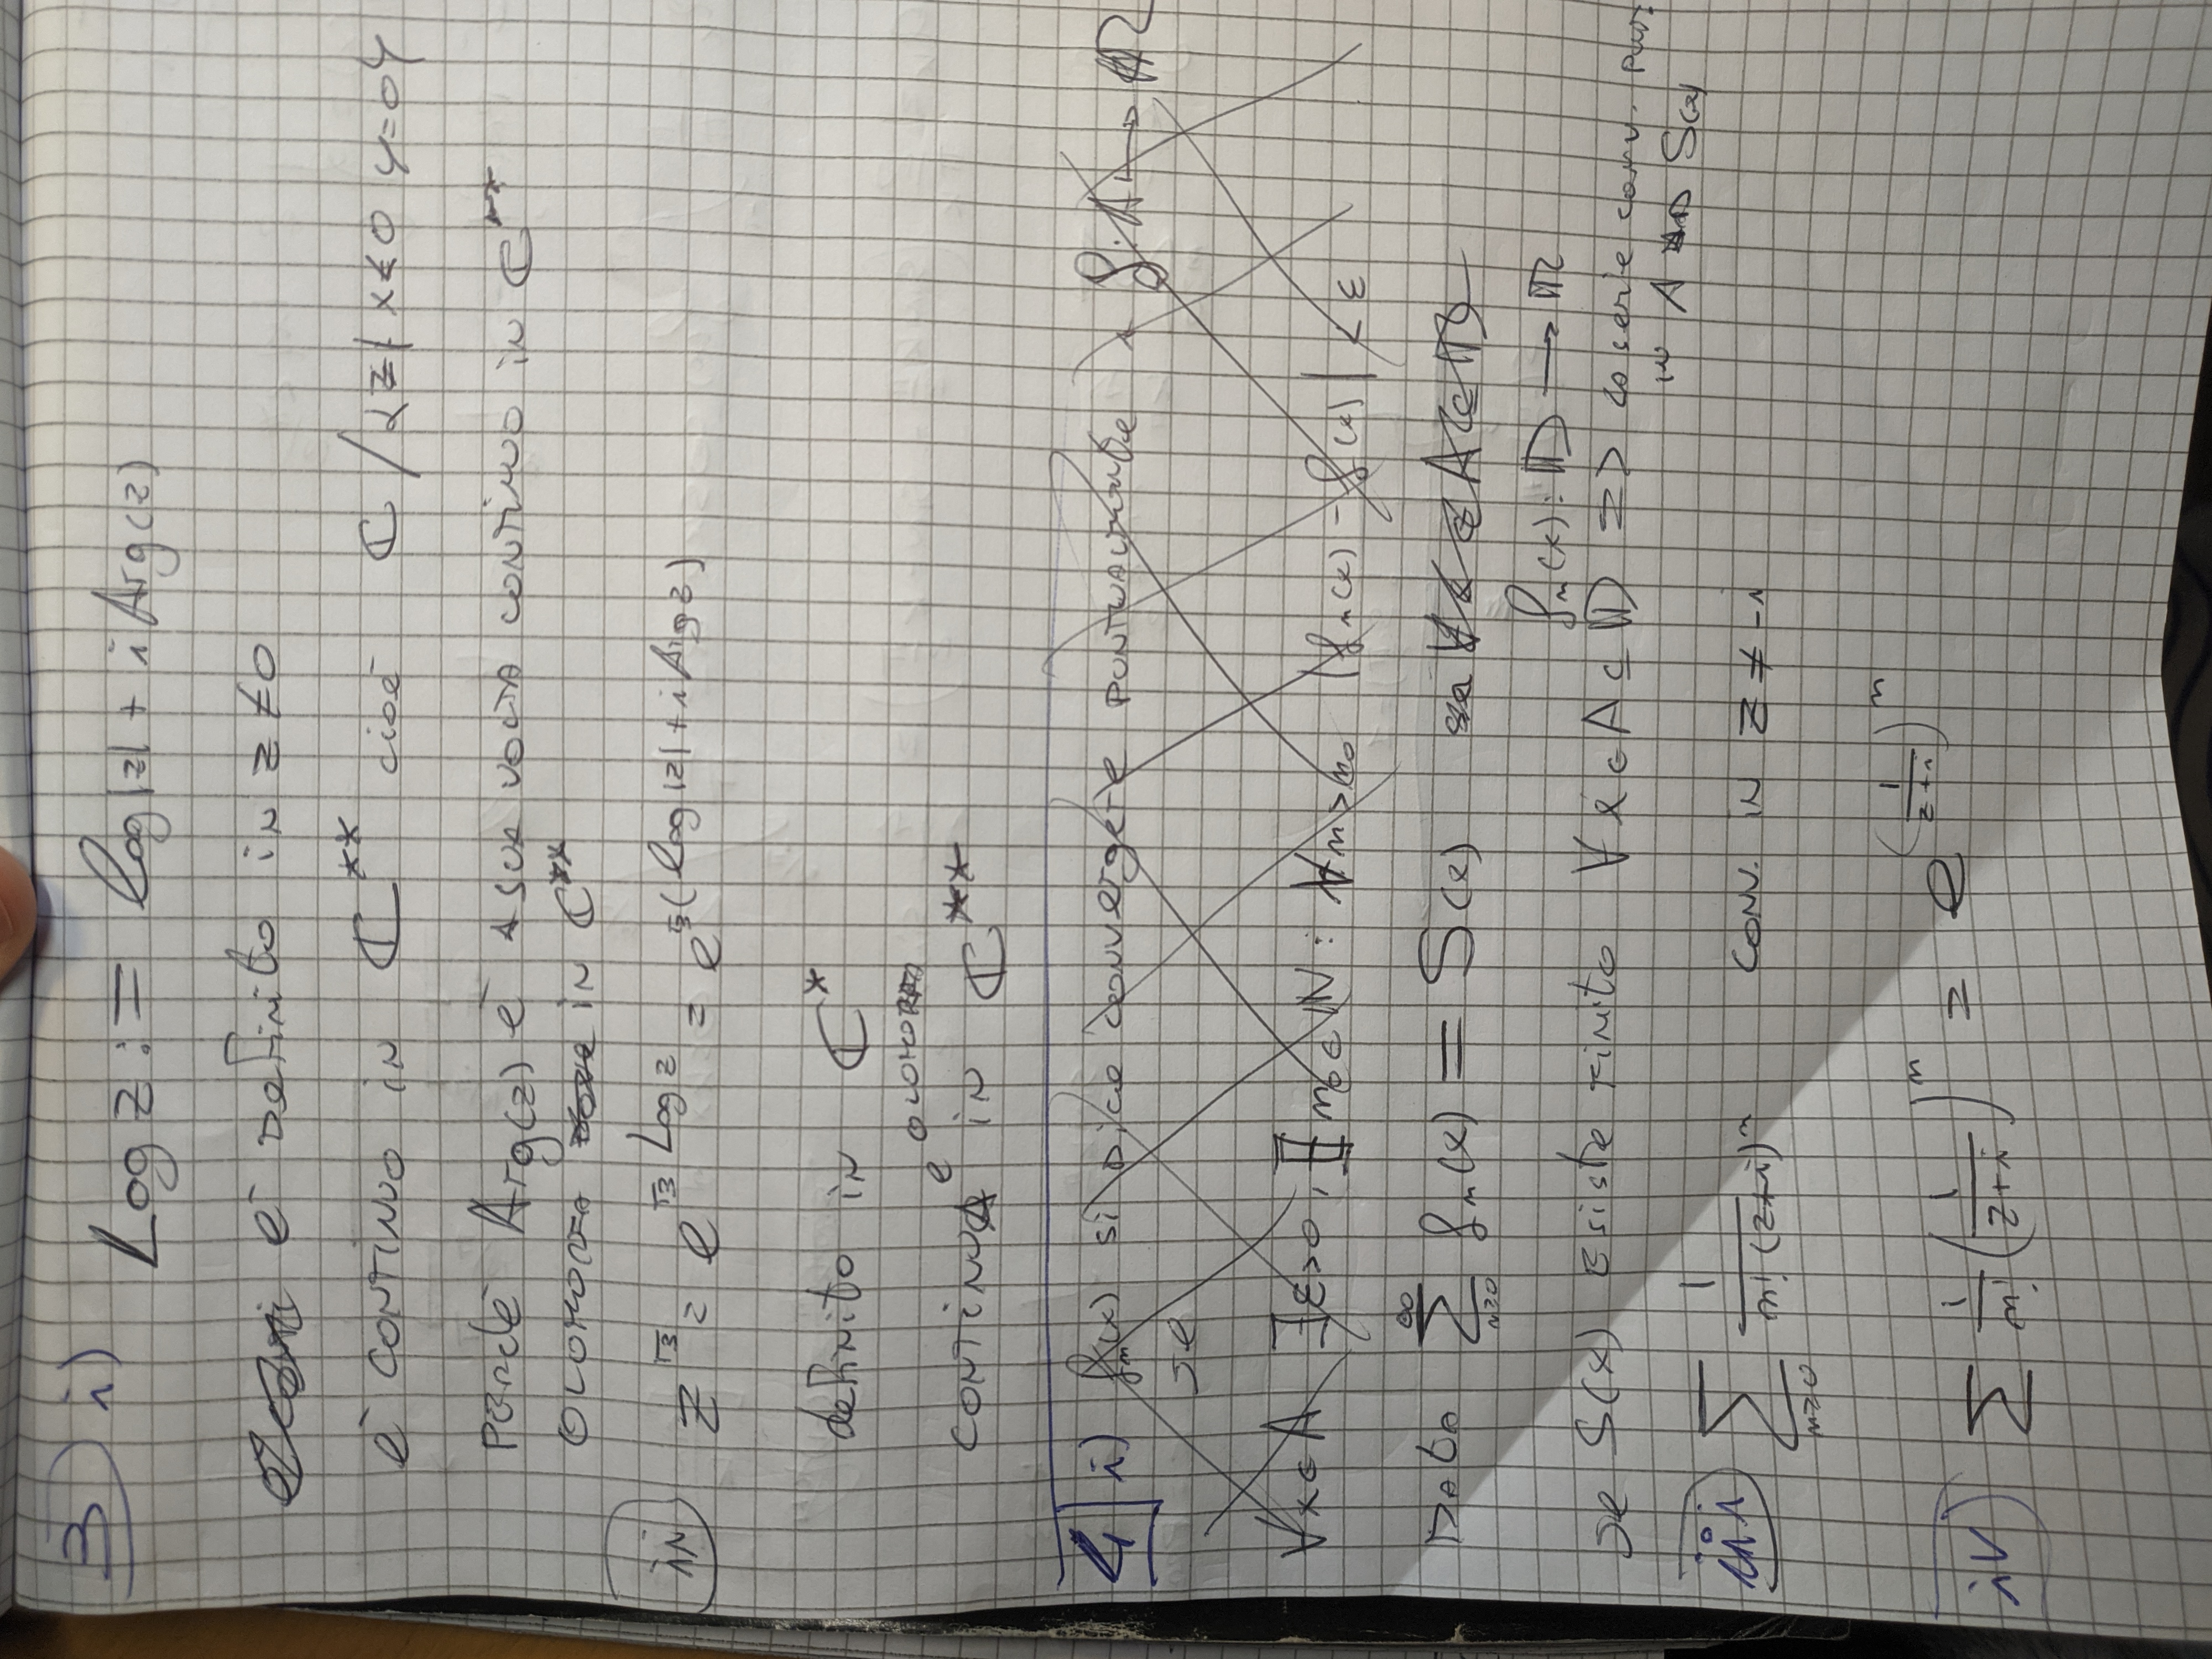 3) i)
Log z := log|z| + i Arg(z)
è definito in z≠0
è continuo in ℂ** cioè ℂ / {z | x≤0 y=0}
perché Arg(z) è a sua volta continuo in ℂ**
olomorfa in ℂ**
ii) z^√3 = e^(√3 Log z) = e^(√3(log|z| + i Arg z))
definito in ℂ*
e olomorfa
continua in ℂ**
4 i) fₙ(x) si dice convergere puntualmente a f: A → ℝ
se
∀x∈A ∃ε>0, ∃n₀∈ℕ: ∀n>n₀ |fₙ(x) - f(x)| < ε
Data ∑_{n≥0}^∞ fₙ(x) = S(x)
fₙ(x): D → ℝ
se S(x) esiste finito ∀x∈A⊆D => la serie conv. punt.
in A S(x)
iii) ∑_{n≥0} 1/(n! (z+i)ⁿ) conv. in z ≠ -i
iv) ∑ 1/n! (1/(z+i))ⁿ = e^(1/(z+i))ⁿ